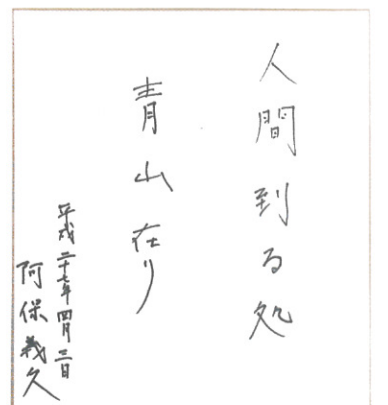 人間到る処
青山在り
平成二十七年四月三日
阿保義久